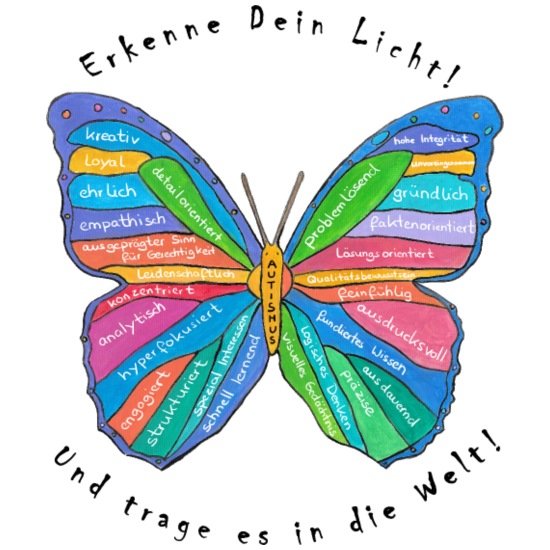 Erkenne Dein Licht!
kreativ
Loyal
ehrlich
empathisch
ausgeprägter Sinn
für Gerechtigkeit
Leidenschaftlich
konzentriert
analytisch
hyperfokusiert
engagiert
strukturiert
spezial Interessen
schnell lernend
detailorientiert
AUTISMUS
problemlösend
hohe Integrität
unvoreingenommen
gründlich
faktenorientiert
Lösungsorientiert
Qualitätsbewusstsein
feinfühlig
ausdrucksvoll
fundiertes Wissen
ausdauernd
präzise
logisches Denken
visuelles Gedächtnis
Und trage es in die Welt!